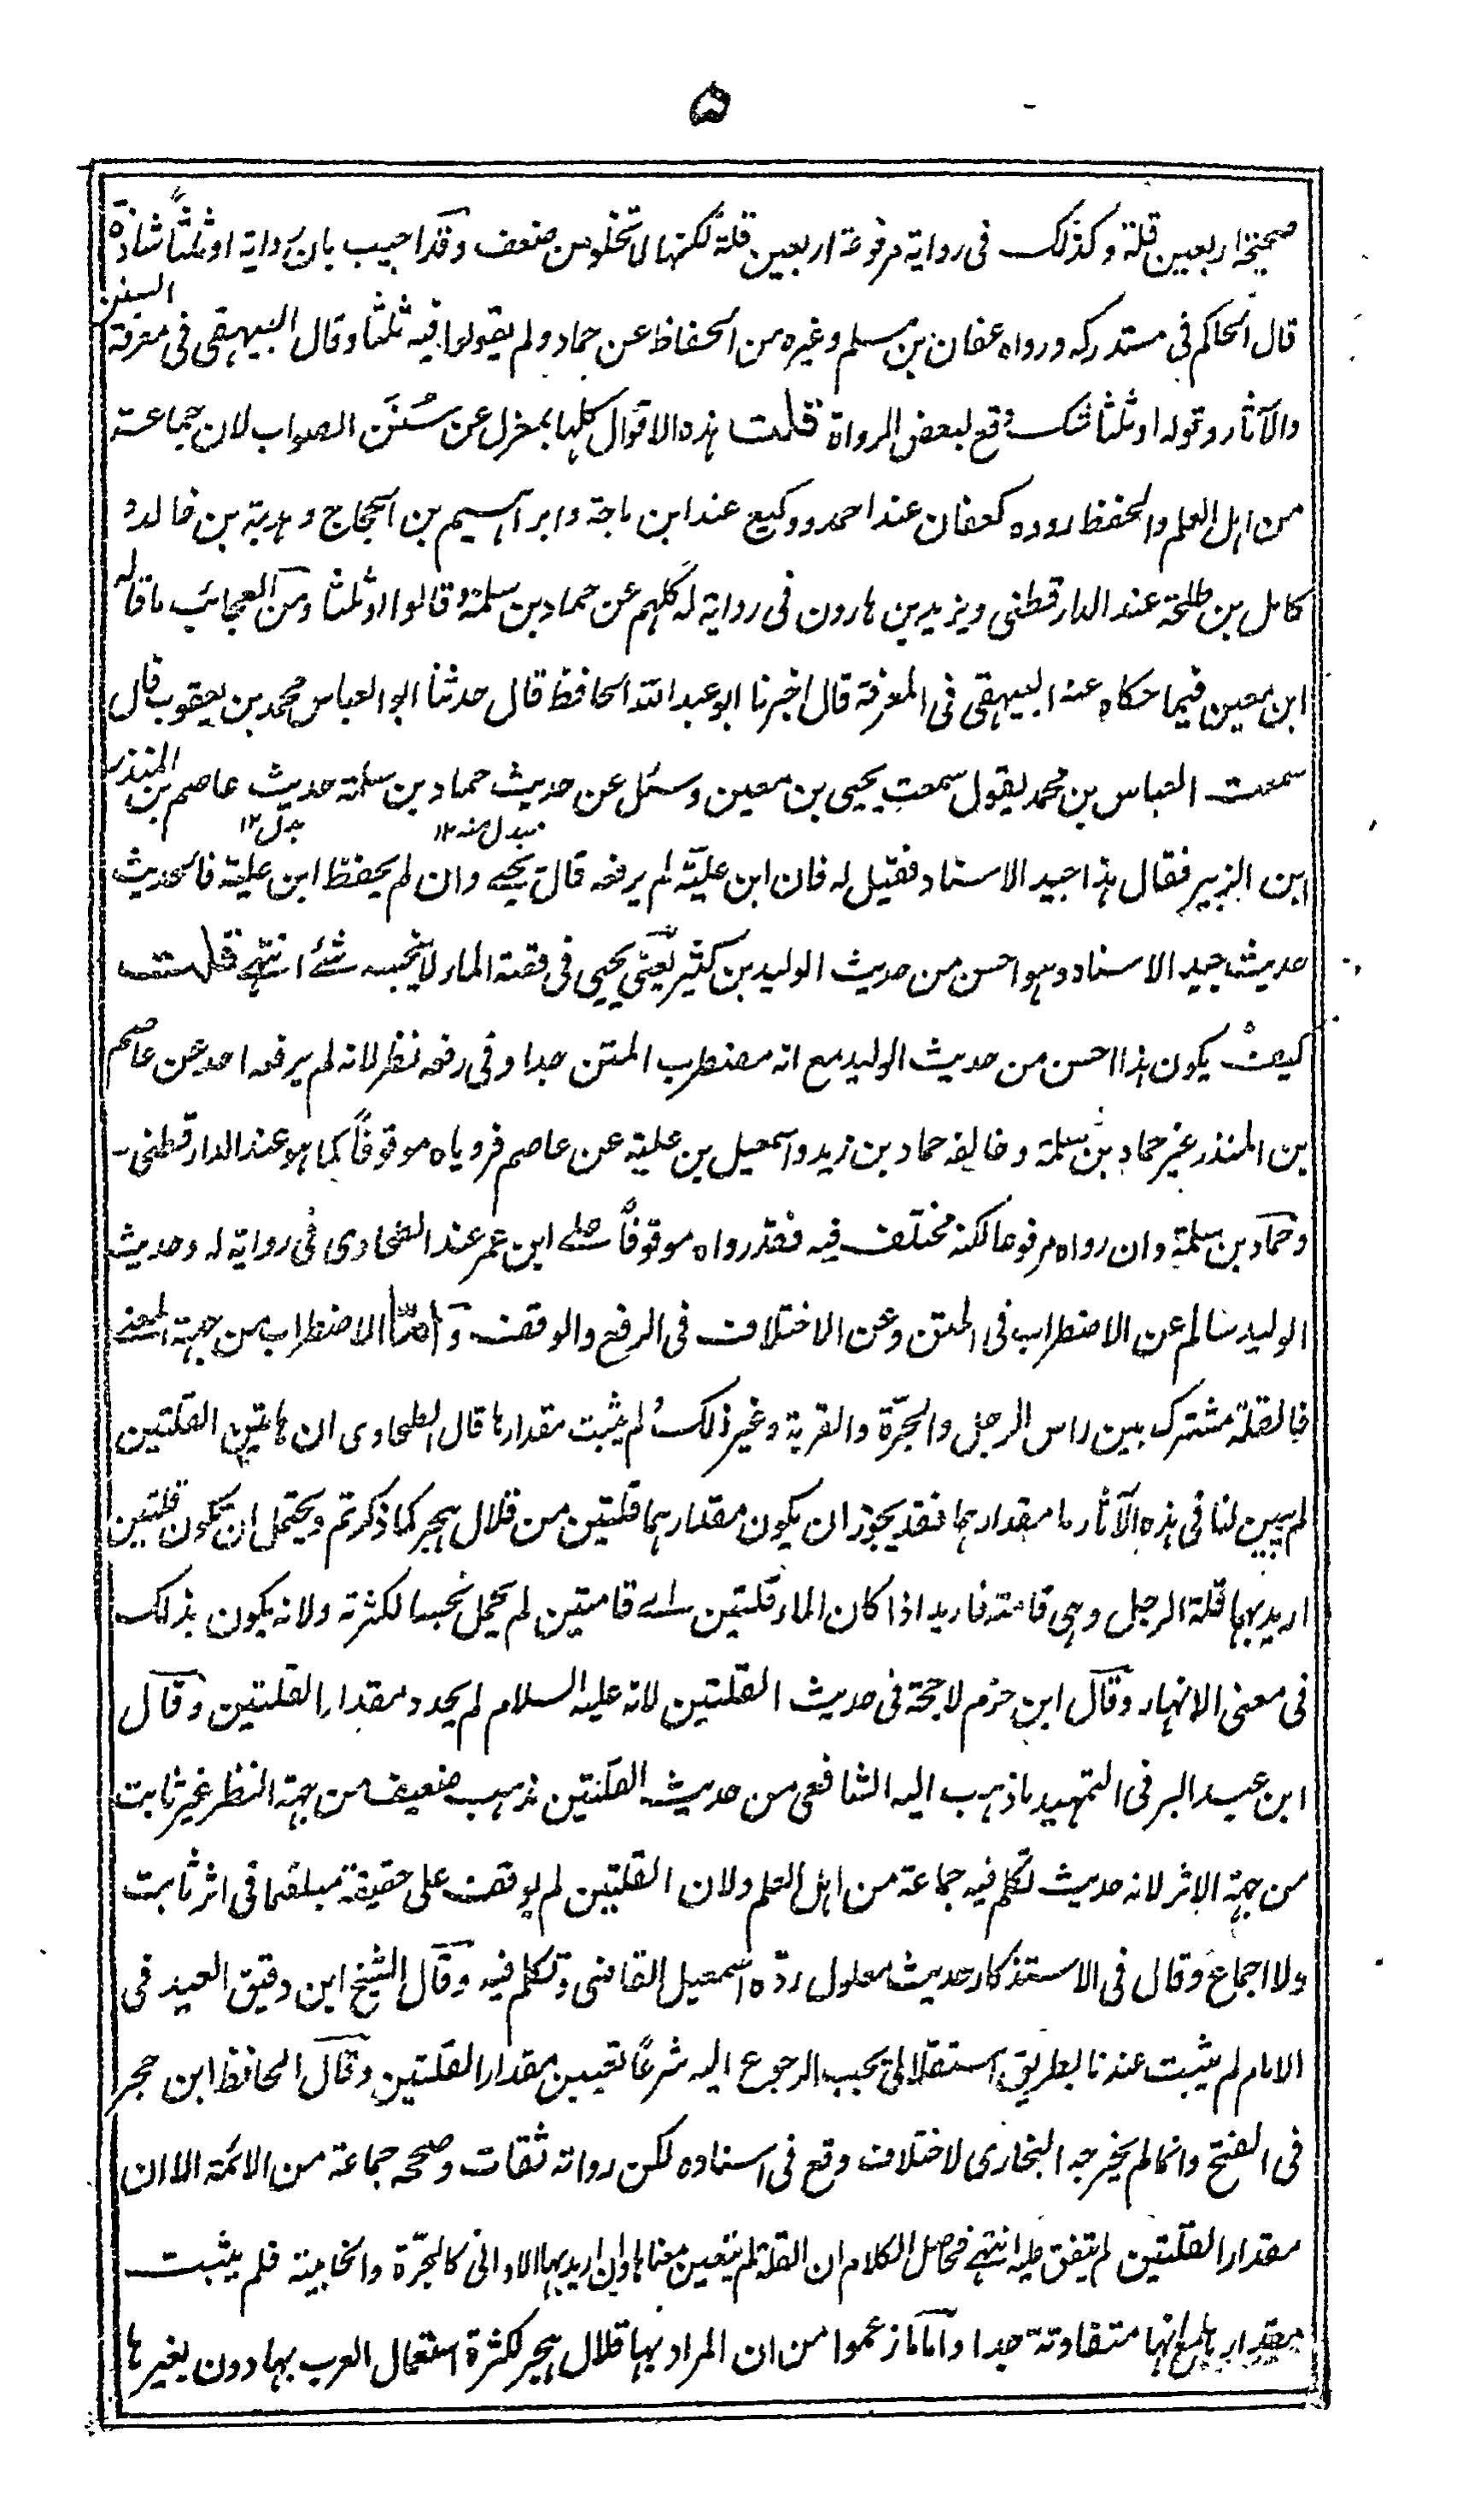 ۵
صحيحة اربعين قلة وكذلك فى رواية مرفوعة اربعين قلة لكنها لا تخلو من ضعف وقد اجيب بان رواية او ثلثاً شاذة
قال الحاكم فى مستدركه ورواه عفان بن مسلم وغيره من الحفاظ عن حماد ولم يقولوا فيه ثلثا وقال البيهقى فى معرفة السنن
والآثار وقوله او ثلثا شك وقع لبعض الرواة قلت هذه الاقوال كلها بمعزل عن سُنَن الصواب لان جماعة
من اهل العلم والحفظ رووه كعفان عند احمد ووكيع عند ابن ماجة وابراهيم بن الحجاج وهدبة بن خالد و
كامل بن طلحة عند الدارقطنى ويزيد بن هارون فى رواية له كلهم عن حماد بن سلمة وقالوا او ثلثا ومن العجائب ما قاله
ابن معين فيما حكاه عنه البيهقى فى المعرفة قال اخبرنا ابو عبد الله الحافظ قال حدثنا ابو العباس محمد بن يعقوب قال
سمعت العباس بن محمد يقول سمعت يحيى بن معين وسئل عن حديث حماد بن سلمة حديث عاصم بن المنذر
مبدل منه ۱۲ بدل ۱۲
ابن الزبير فقال هذا جيد الاسناد فقيل له فان ابن علية لم يرفعه قال يحيى وان لم يحفظ ابن علية فالحديث
حديث جيد الاسناد وهو احسن من حديث الوليد بن كثير يعنى يحيى فى قصة الماء لا ينجسه شئ انتهى قلت
كيف يكون هذا احسن من حديث الوليد مع انه مضطرب المتن جدا وفى رفعه نظر لانه لم يرفعه احد عن عاصم
بن المنذر غير حماد بن سلمة وخالفه حماد بن زيد واسمعيل بن علية عن عاصم فروياه موقوفاً كما هو عند الدارقطنى
وحماد بن سلمة وان رواه مرفوعا لكنه مختلف فيه فقد رواه موقوفاً على ابن عمر عند الطحاوى فى رواية له وحديث
الوليد سالم عن الاضطراب فى المتن وعن الاختلاف فى الرفع والوقف وامّا الاضطراب من جهة المعنى
فالقلة مشترك بين راس الرجل والجرّة والقربة وغير ذلك لم يثبت مقدارها قال الطحاوى ان هاتين القلتين
لم يبين لنا فى هذه الآثار ما مقدارهما فقد يجوز ان يكون مقدارهما قلتين من قلال هجر كما ذكرتم ويحتمل ان تكون قلتين
اريد بهما قلة الرجل وهى قامته فاريد اذا كان الماء قلتين اى قامتين لم يحمل نجسا لكثرته ولانه يكون بذلك
فى معنى الانهار وقال ابن حزم لا حجة فى حديث القلتين لانه عليه السلام لم يحدد مقدار القلتين وقال
ابن عبد البر فى التمهيد ما ذهب اليه الشافعى من حديث القلتين مذهب ضعيف من جهة النظر غير ثابت
من جهة الاثر لانه حديث تكلم فيه جماعة من اهل العلم ولان القلتين لم يوقف على حقيقة مبلغهما فى اثر ثابت
ولا اجماع وقال فى الاستذكار حديث معلول ردّه اسمعيل القاضى وتكلم فيه وقال الشيخ ابن دقيق العيد فى
الامام لم يثبت عندنا بطريق استقلالى يجب الرجوع اليه شرعاً تعيين مقدار القلتين وقال الحافظ ابن حجر
فى الفتح وانما لم يخرجه البخارى لاختلاف وقع فى اسناده لكن رواته ثقات وصححه جماعة من الائمة الا ان
مقدار القلتين لم يتفق عليه انتهى فحاصل الكلام ان القلة لم يتعين معناها وان اريد بها الاوانى كالجرّة والخابية فلم يثبت
مقدارها مع انها متفاوتة جدا واما ما زعموا من ان المراد بها قلال هجر لكثرة استعمال العرب بها دون بغيرها